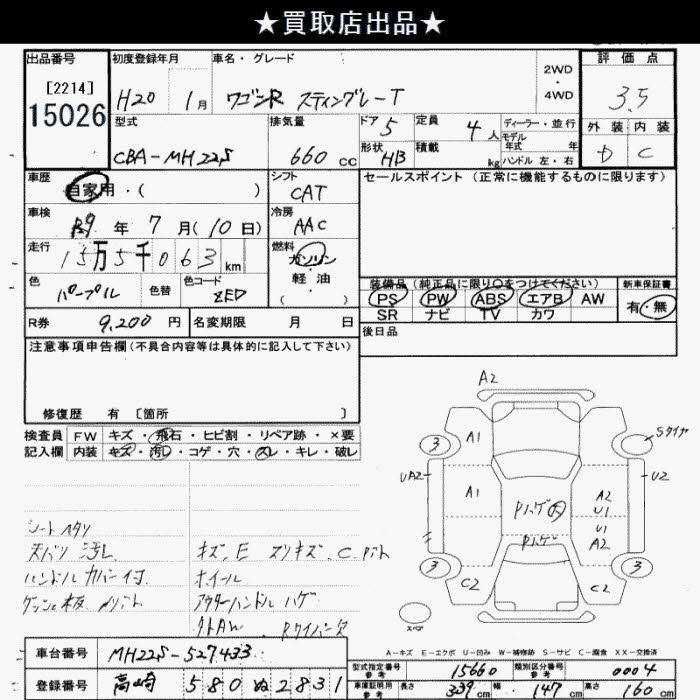 ★買取店出品★
出品番号 初度登録年月 車名・グレード 2WD・4WD 評価点
[2214]
15026 H20 1月 ワゴンR スティングレーT 3.5
型式 排気量 ドア 5 定員 4人 ディーラー・並行 外装 内装
CBA-MH22S 660cc 形状 HB 積載 kg モデル年式 年 ハンドル 左・右 D C
車歴 自家用・( ) シフト CAT セールスポイント (正常に機能するものに限ります)
車検 R9年 7月(10日) 冷房 AAC
走行 15万5千063km 燃料 ガソリン
軽油
・( )
色 パープル 色替 色コード ZED
装備品(純正品に限り〇をつけてください) 新車保証書
PS PW ABS エアB AW 有・無
SR ナビ TV カワ
R券 9,200円 名変期限 月 日 後日品
注意事項申告欄(不具合内容等は具体的に記入して下さい)
修復歴 有 [箇所 ]
検査員 FW キズ・飛石・ヒビ割・リペア跡・×要
記入欄 内装 キズ・汚レ・コゲ・穴・スレ・キレ・破レ
A2
3 A1 Sタイヤ
UA2 A1 A2 U2
U1
Pハゲ
U1
A2
Pハゲ
3 3
C2 C2
スペア
シートヘタリ
天バリ汚レ キズ、E スリキズ、C
ハンドルカバー付 ホイール
アウターハンドルハゲ
社外AW
A-キズ E-エクボ U-凹み W-補修跡 S-サビ C-腐食 XX-交換済
車台番号 MH22S-527433
登録番号 高崎 580 ぬ 2831
型式指定番号 参考 15660 類別区分番号 参考 0004
車庫証明用 参考 長さ 339cm 幅 147cm 高さ 160cm